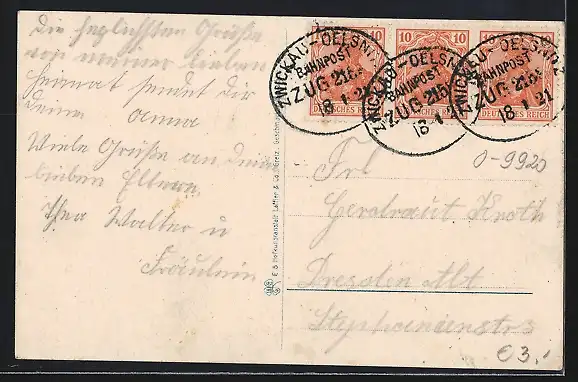 die herzlichsten Grüße
von meiner lieben
Heimat sendet dir
deine Anna
Viele Grüße an deine
lieben Eltern
Walter u
Fräulein
E & Hofkunstanstalt Löffler & Co., Greiz.
10
10
10
DEUTSCHES REICH
DEUTSCHES REICH
ZWICKAU-OELSNITZ
BAHNPOST
ZUG 2163
18 1 21
ZWICKAU-OELSNITZ
BAHNPOST
ZUG 2163
18 1 21
ZWICKAU-OELSNITZ
BAHNPOST
ZUG 2163
18 1 21
0-9920
Frl
Gerdraut Kroth
Dresden Alt
Stephanienstr
€3,-